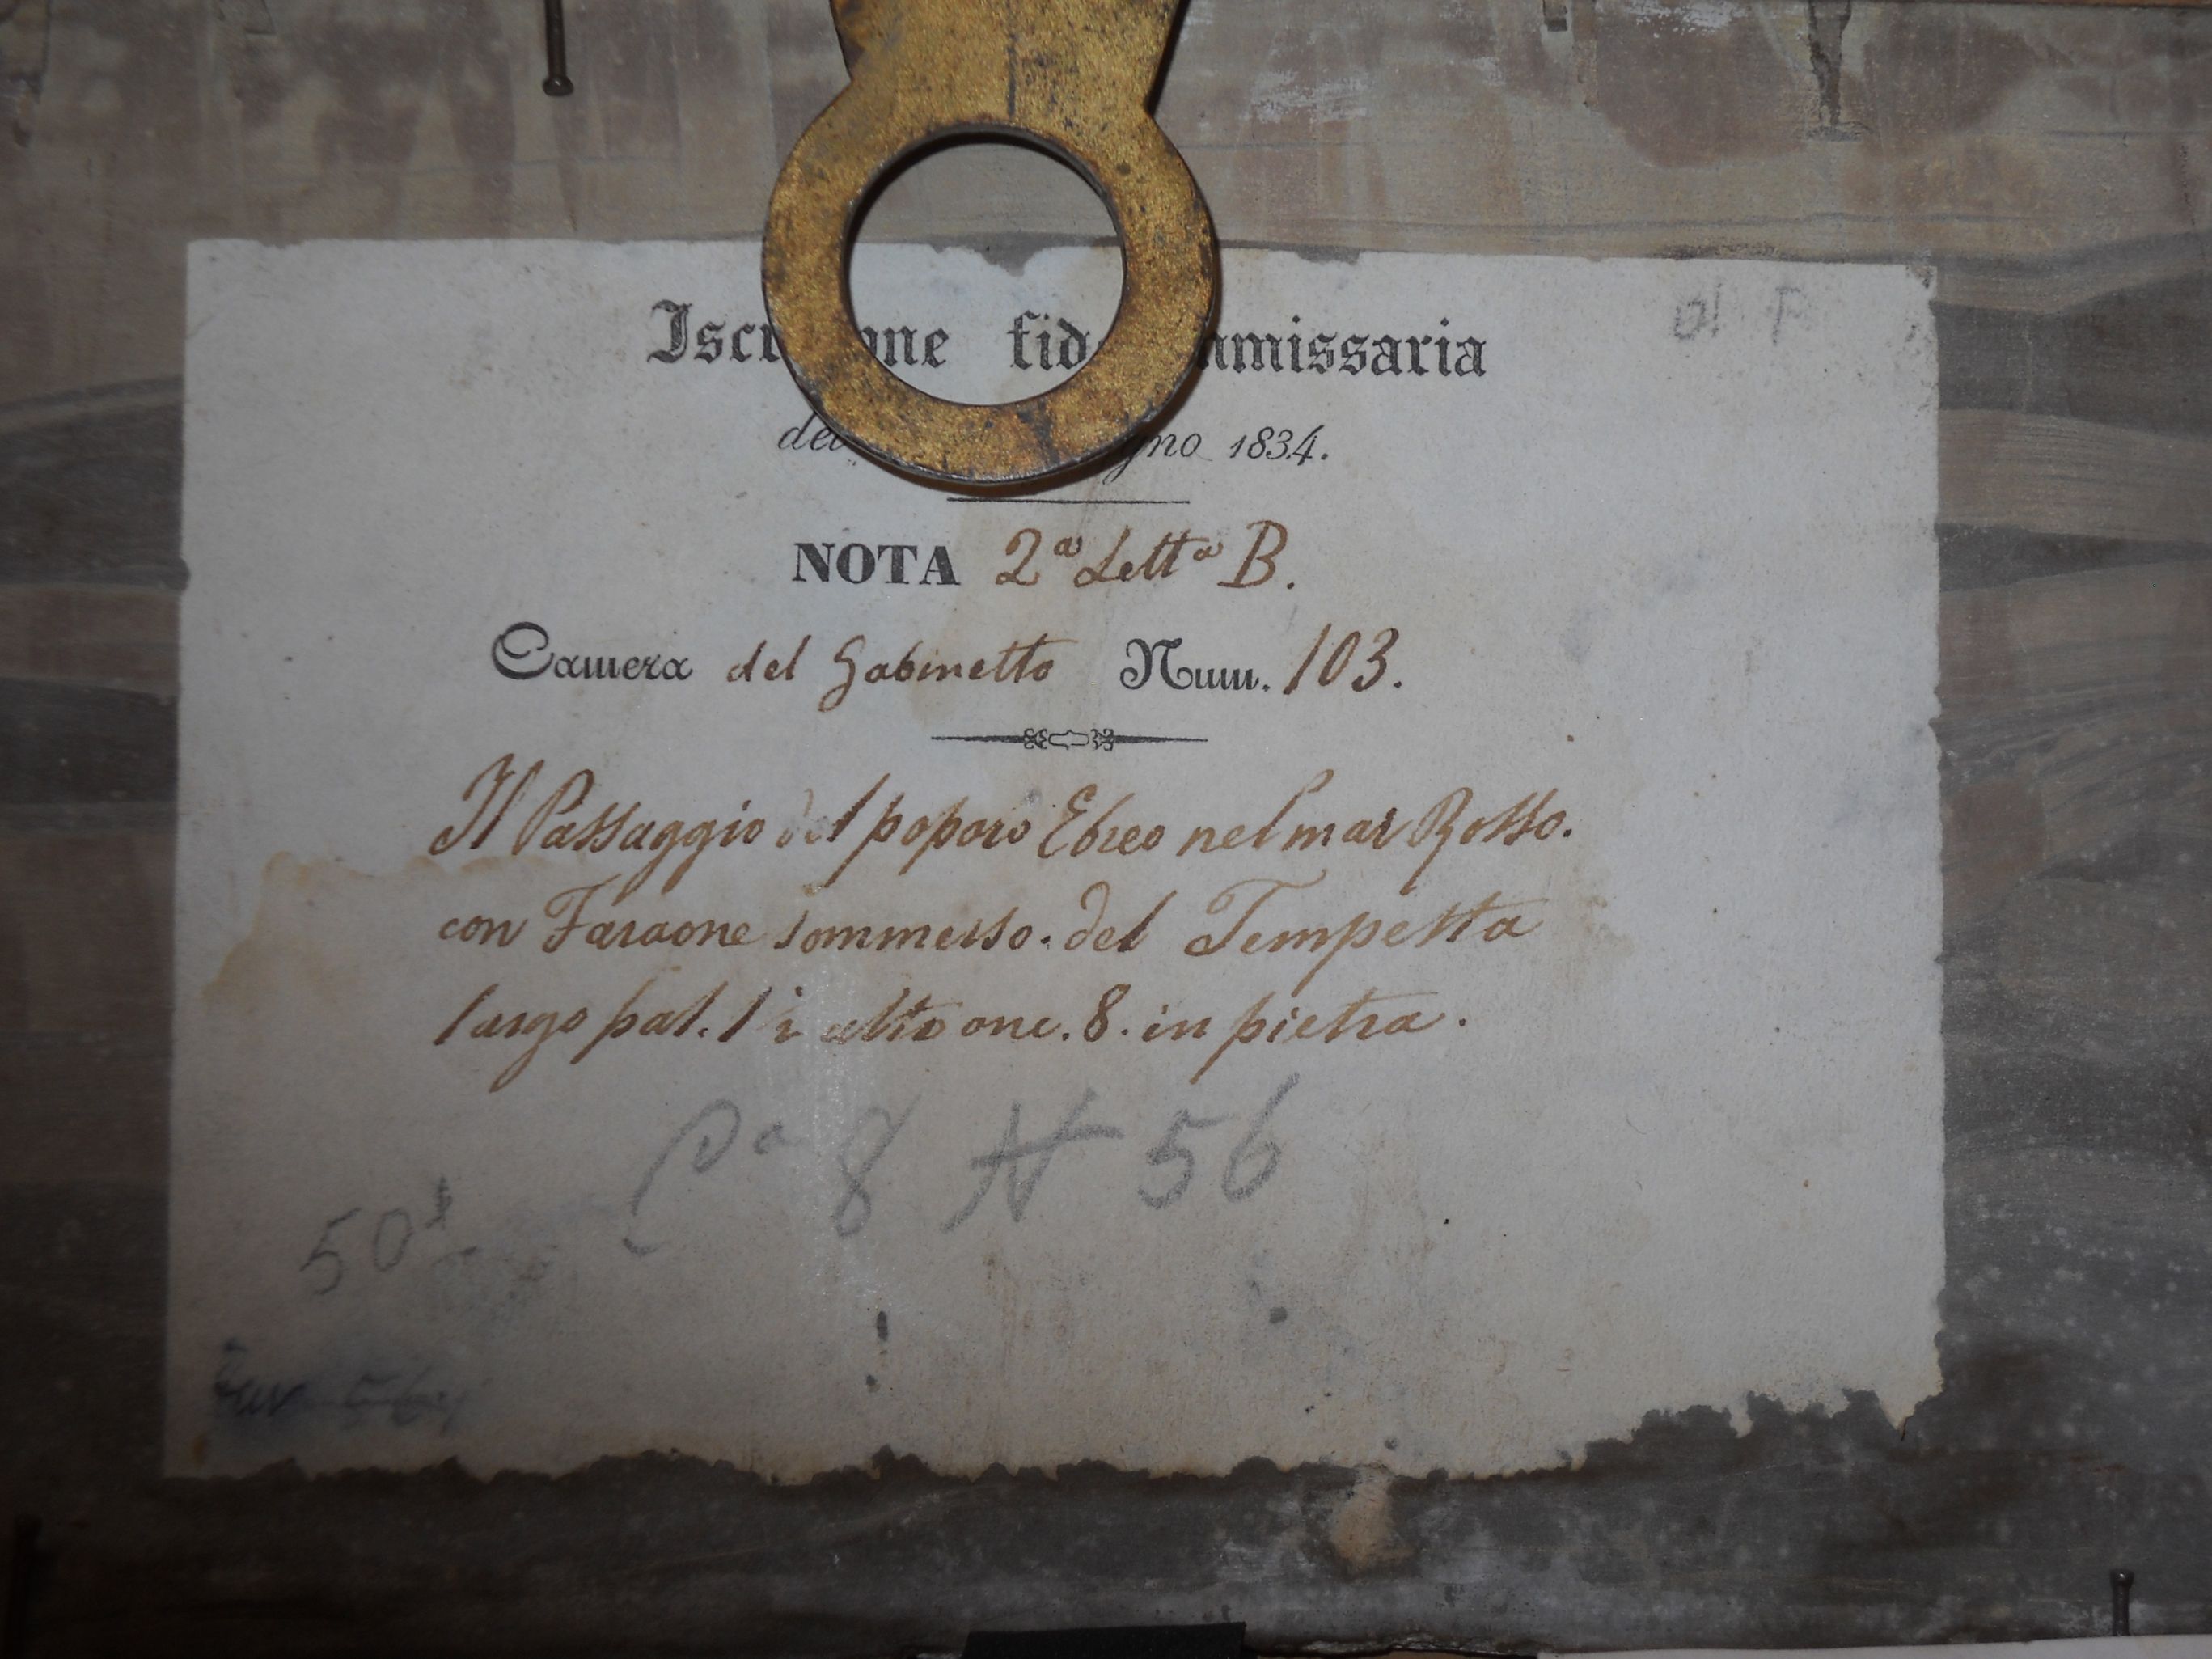 Iscr one fid mmissaria
del gno 1834.
NOTA 2ª Lettª B.
Camera del Gabinetto Num. 103.
Il Passaggio del poporo Ebreo nel mar Rosso.
con Faraone sommerso. del Tempesta
largo pal. 1 i alto onc. 8. in pietra.
Pª 8 N 56
50